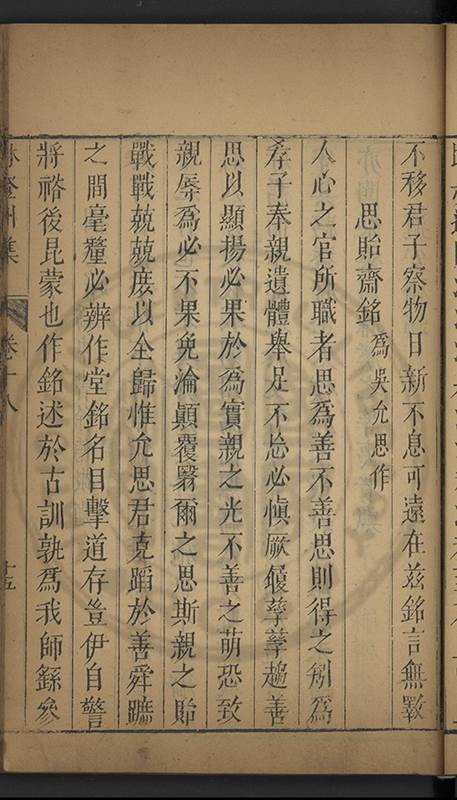 不移君子察物日新不息可遠在茲銘言無斁
思貽齋銘 為吳允思作
人心之官所職者思為善不善思則得之矧為
孝子奉親遺體舉足不忘必愼厥履孳孳趨善
思以顯揚必果於為實親之光不善之萌恐致
親辱為必不果免淪顚覆繄爾之思斯親之貽
戰戰兢兢庶以全歸惟允思君克蹈於善舜蹠
之間毫釐必辨作堂銘名目擊道存豈伊自警
將裕後昆蒙也作銘述於古訓孰爲我師繇參
集 卷十八 十五